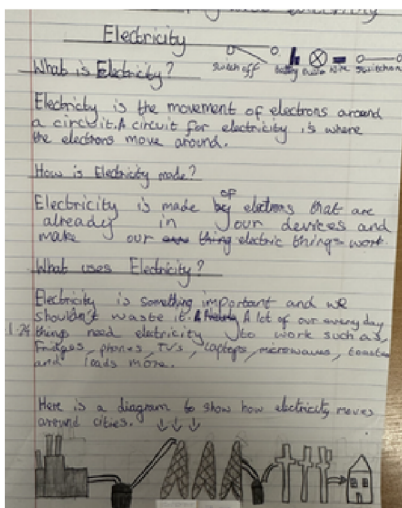 Electricity
What is Electricity?
Switch off Battery Bulb Wire Switch on
Electricity is the movement of electrons around
a circuit. A circuit for electricity is where
the electrons move around.
How is Electricity made?
Electricity is made by of electrons that are
already in our devices and
make our thing electric things work.
What uses Electricity?
Electricity is something important and we
shouldn't waste it. A lot of our everyday
things need electricity to work such as,
Fridges, phones, TV's, laptops, microwaves, toaster
and loads more.
Here is a diagram to show how electricity moves
around cities.